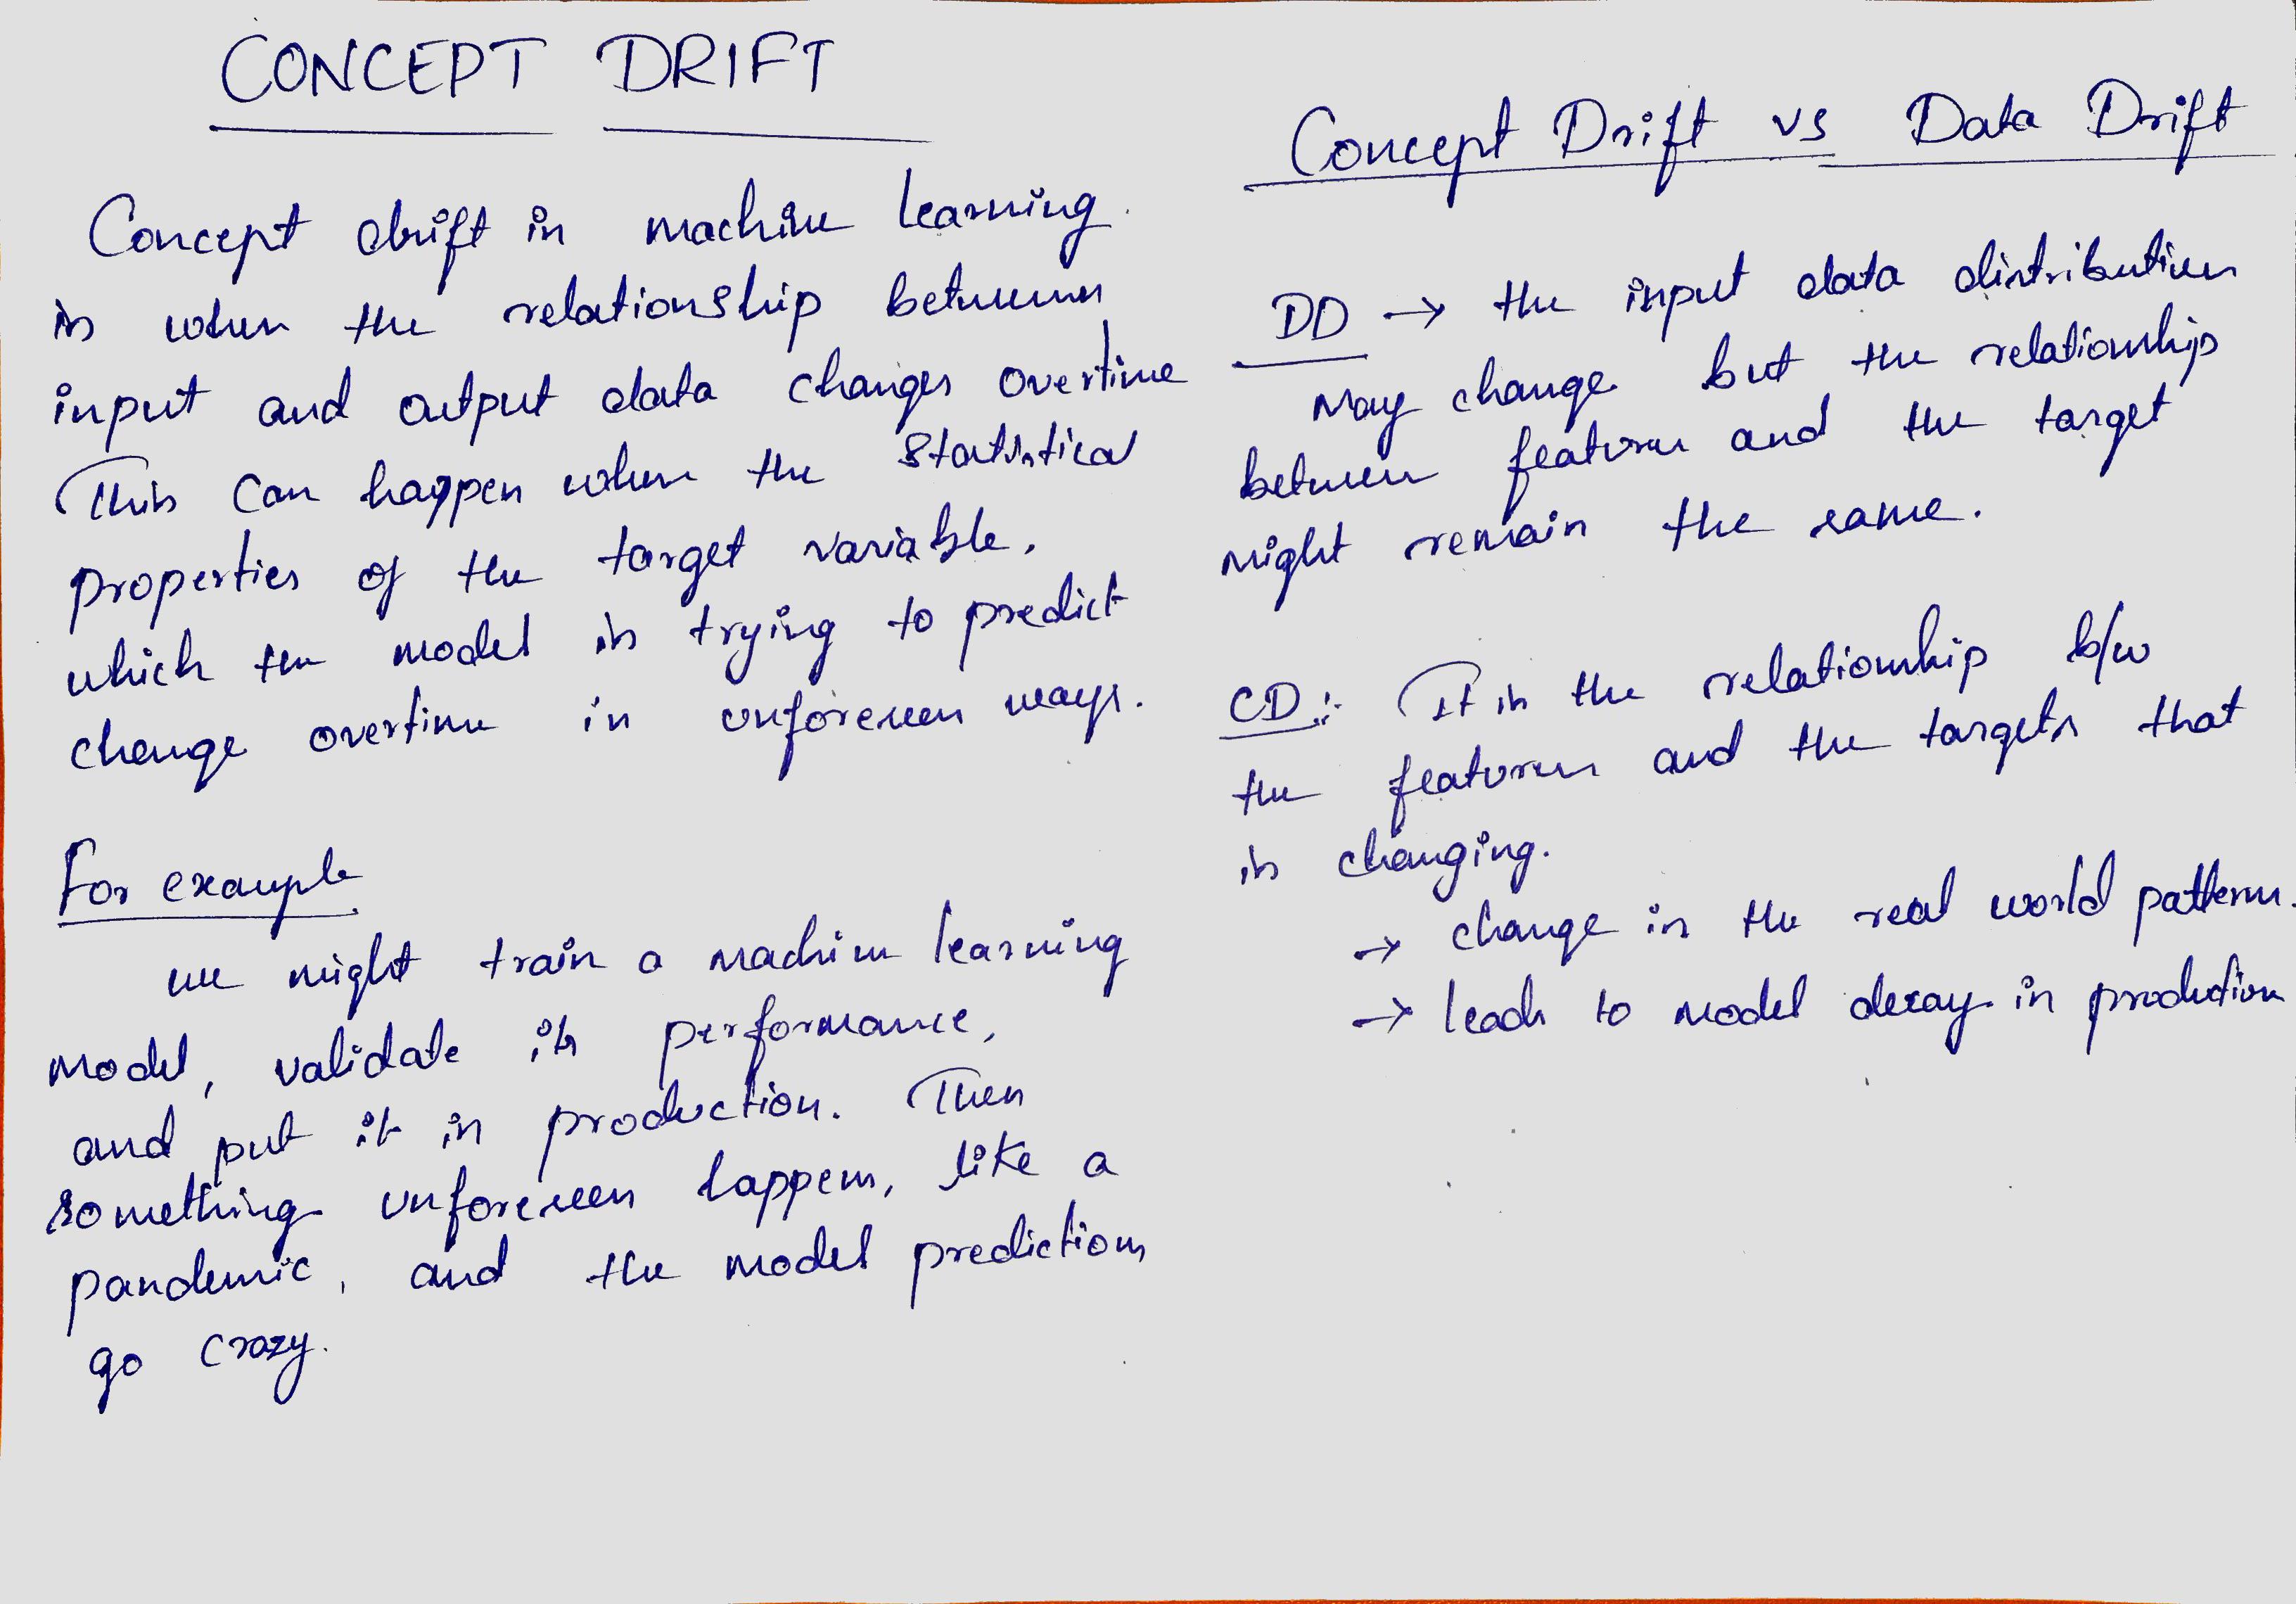 CONCEPT DRIFT
Concept drift in machine learning
is when the relationship between
input and output data changes overtime
This can happen when the statistical
properties of the target variable,
which the model is trying to predict
change overtime in unforeseen ways.
For example
we might train a machine learning
model, validate its performance,
and put it in production. Then
something unforeseen happens, like a
pandemic, and the model predictions
go crazy.
Concept Drift vs Data Drift
DD → the input data distribution
may change but the relationship
between features and the target
might remain the same.
CD :- It is the relationship b/w
the features and the targets that
is changing.
→ change in the real world patterns.
→ leads to model decay in production